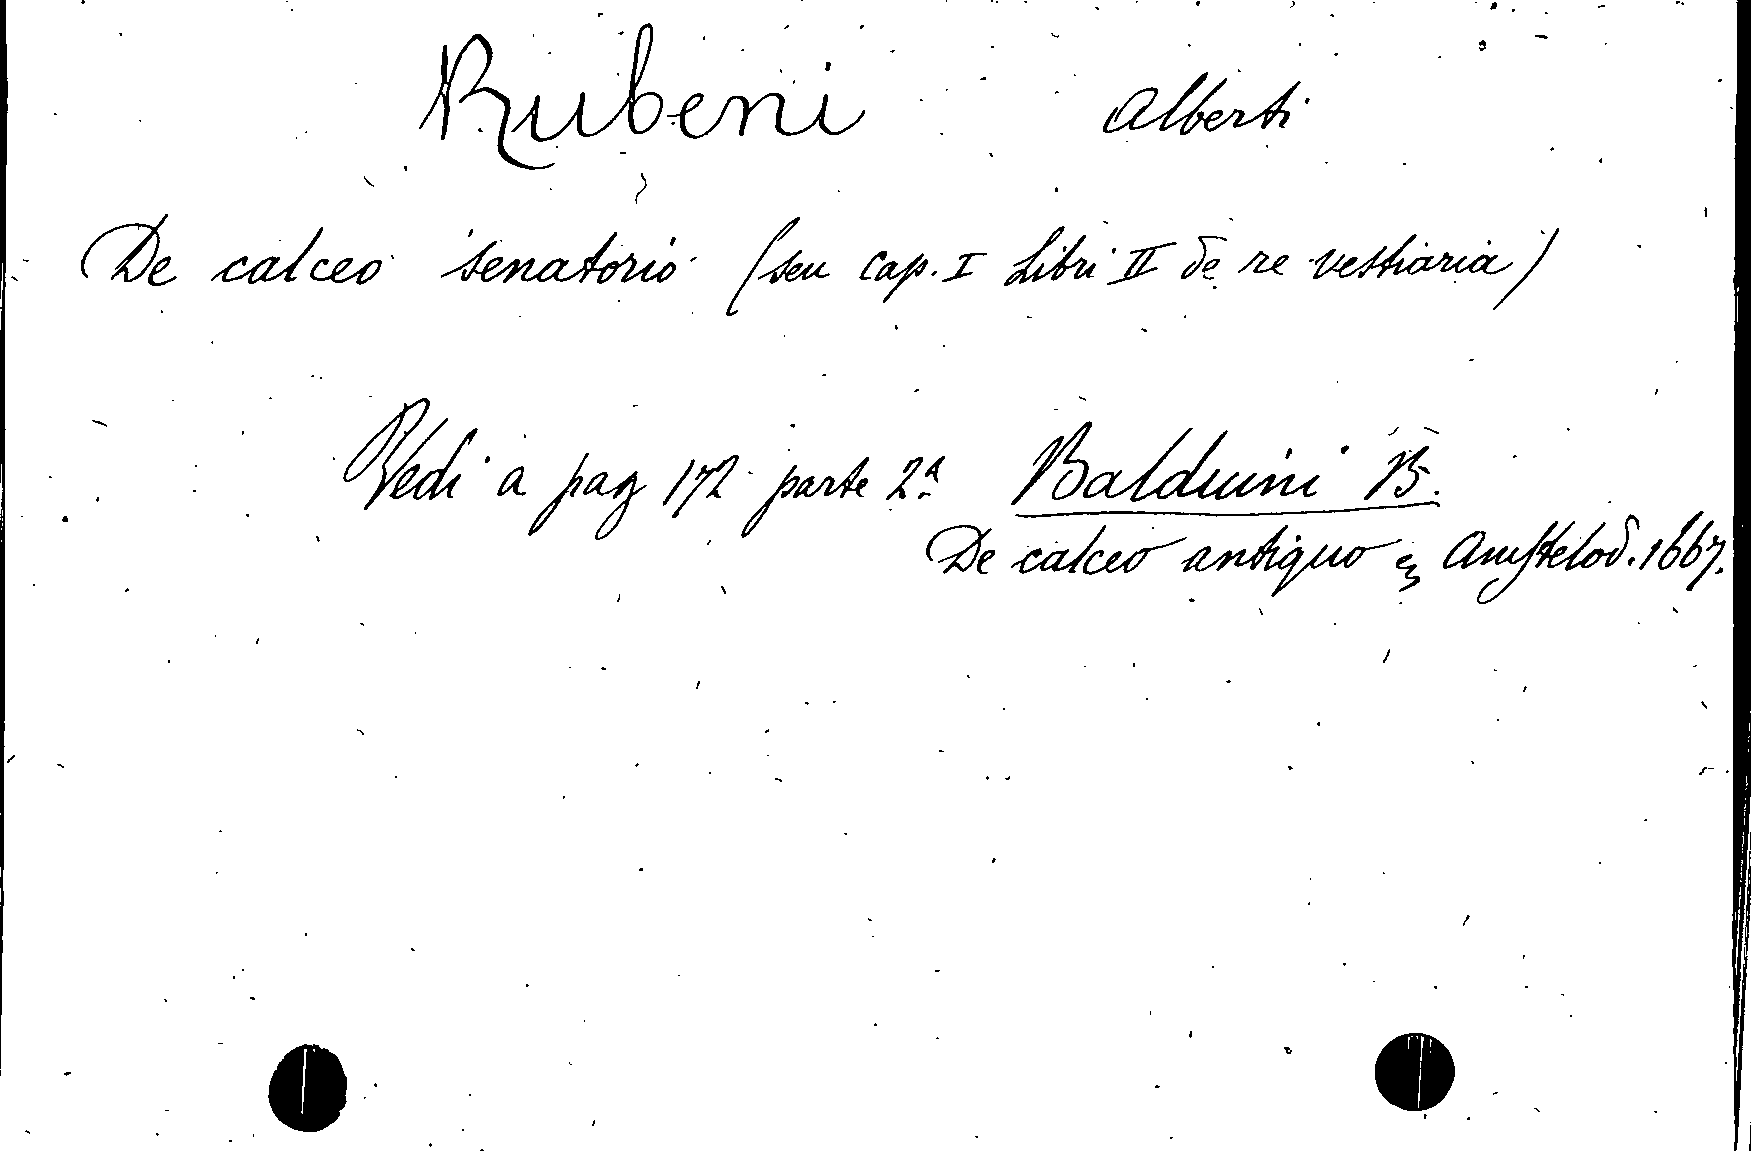 Rubeni Alberti
De calceo senatorio (seu cap. I Libri II de re vestiaria)
Vedi a pag 172 parte 2ª Balduini B.
De calceo antiquo Amstelod. 1667.